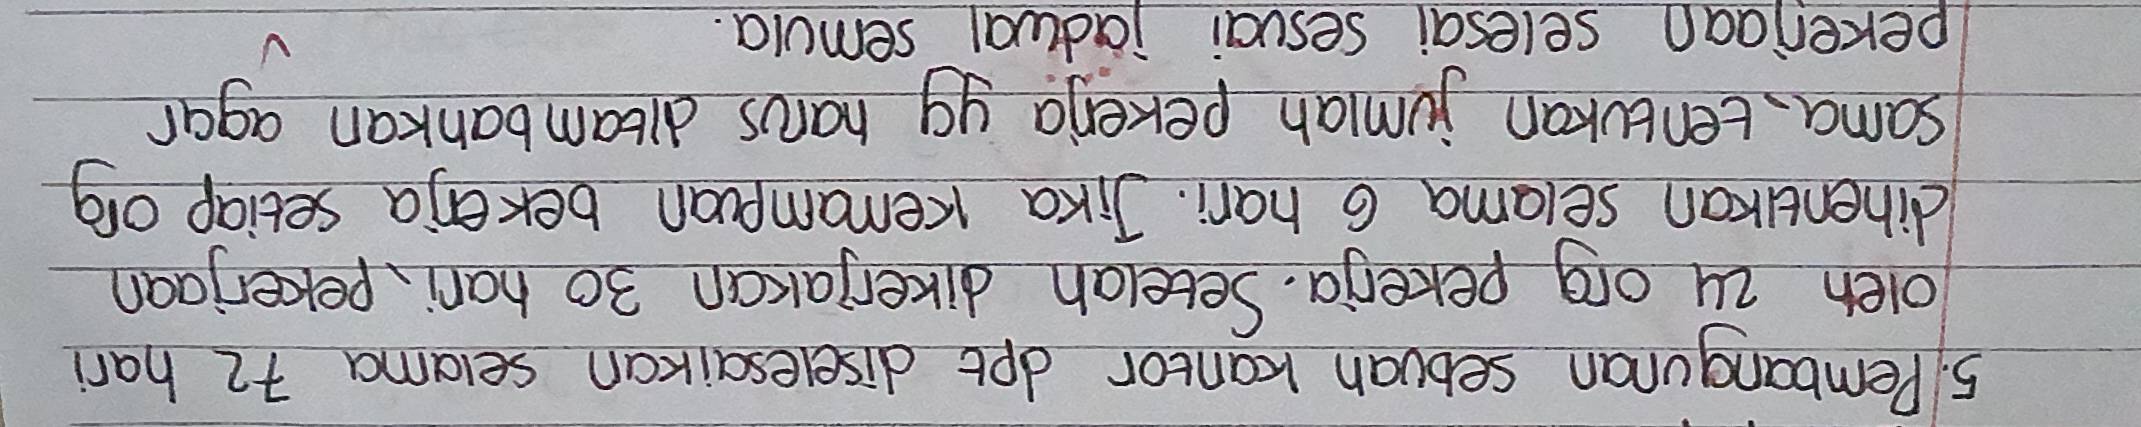 5. Pembangunan sebuah kantor dpt diselesaikan selama 72 hari
oleh 24 org pekerja. Setelah dikerjakan 30 hari, pekerjaan
dihentikan selama 6 hari. Jika kemampuan bekerja setiap org
sama, tentukan jumlah pekerja yg harus ditambahkan agar
pekerjaan selesai sesuai jadwal semula.